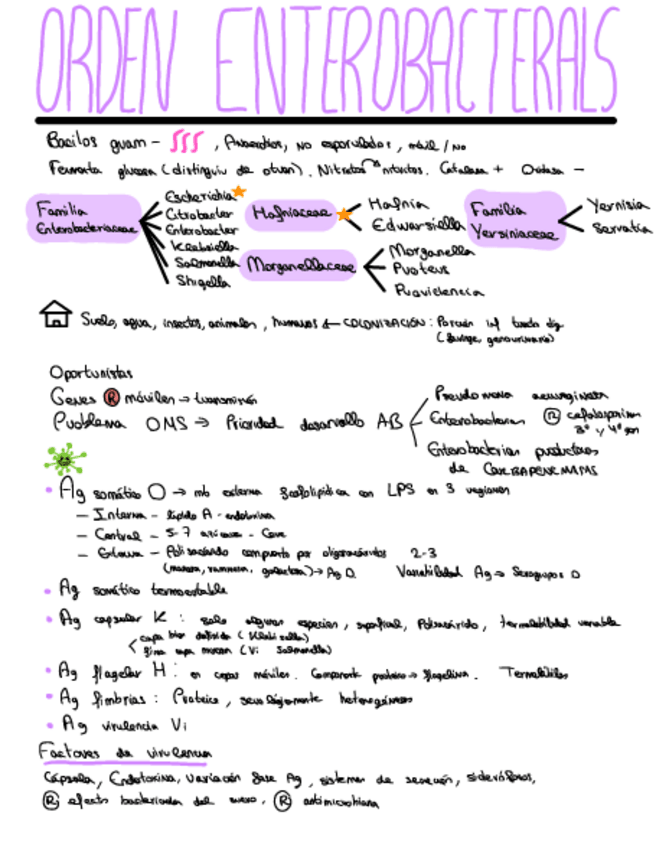 ORDEN ENTEROBACTERALS
Bacilos gram - , Anaerobios, no esporulados, móvil / no
Fermenta glucosa (distinguir de otras). Nitratos → nitritos. Catalasa + Oxidasa -
Familia Enterobacteriaceae
Escherichia
Citrobacter
Enterobacter
Klebsiella
Salmonella
Shigella
Hafniaceae
Hafnia
Edwarsiella
Morganellaceae
Morganella
Proteus
Providencia
Familia Yersiniaceae
Yersinia
Serratia
Suelo, agua, insectos, animales, humanos ← COLONIZACIÓN: Porción inf tracto dig
(faringe, genourinario)
Oportunistas
Genes R móviles → transmisión
Problema OMS → Prioridad desarrollo AB
Pseudomona aeruginosa
Enterobacterias R cefalosporinas
3ª y 4ª gen
Enterobacterias productoras
de CARBAPENEMMS
• Ag somático O → mb externa fosfolipídica con LPS en 3 regiones
- Interna - lípido A - endotoxina
- Central - 5-7 azúcares - Core
- Externa - Polisacárido compuesto por oligosacáridos 2-3
(manosa, ramnosa, galactosa) → Ag O. Variabilidad Ag → Serogrupos O
• Ag somático termoestable
• Ag capsular K : solo algunas especies, superficial, Polisacárido, termolabilidad variable
capa bien definida (Klebsiella)
fina capa mucosa (Vi Salmonella)
• Ag flagelar H : en cepas móviles. Componente proteico → flagelina. Termolábiles
• Ag fimbrias : Proteica, serológicamente heterogéneas
• Ag virulencia Vi
Factores de virulencia
Cápsula, Endotoxina, variación fase Ag, sistemas de secreción, sideróforos,
R efecto bactericida del suero, R antimicrobiana